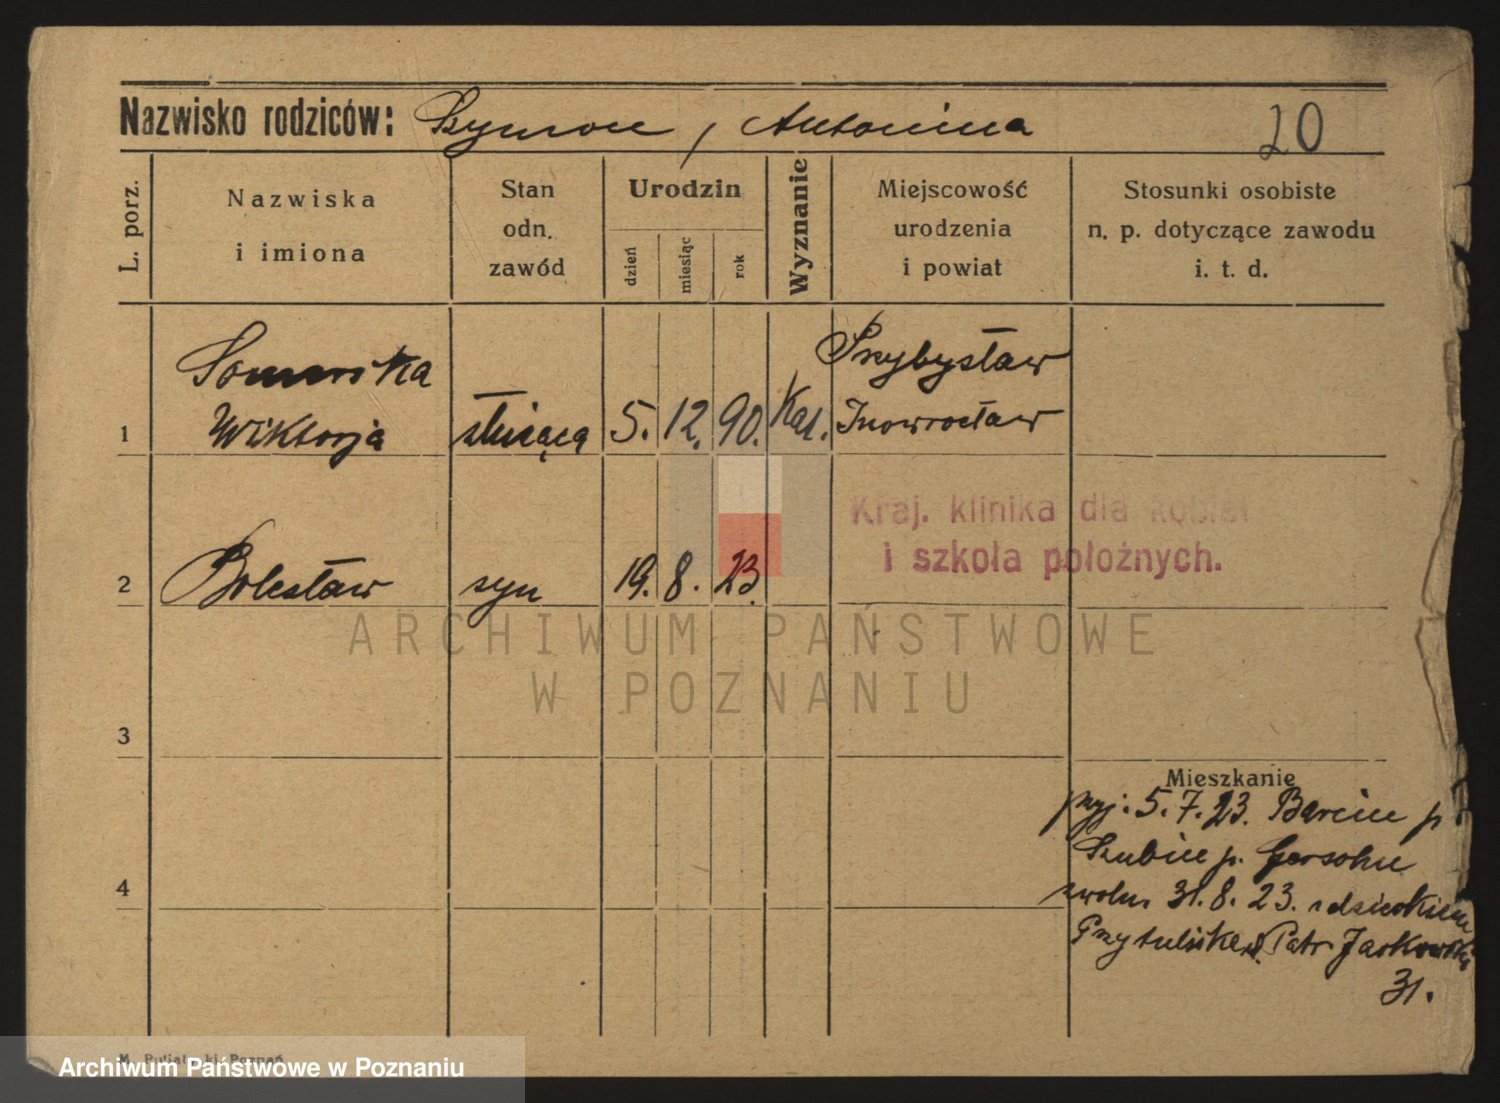 Nazwisko rodziców: Szymon, Antonina 20
L. porz.
Nazwiska
i imiona
Stan
odn.
zawód
Urodzin
dzień
miesiąc
rok
Wyznanie
Miejscowość
urodzenia
i powiat
Stosunki osobiste
n. p. dotyczące zawodu
i. t. d.
Przybysław
1 Wiktorja służąca 5. 12. 90. Kat. Inowrocław
Kraj. klinika dla kobiet
i szkoła położnych.
2 Bolesław syn 19. 8. 23.
ARCHIWUM PAŃSTWOWE
W POZNANIU
3
Mieszkanie
przyj. 5. 7. 23. Barcin p
Szubin p.
4
zwoln. 31. 8. 23. z dzieckiem
Patr Jackowski
31.
Poznań
Archiwum Państwowe w Poznaniu